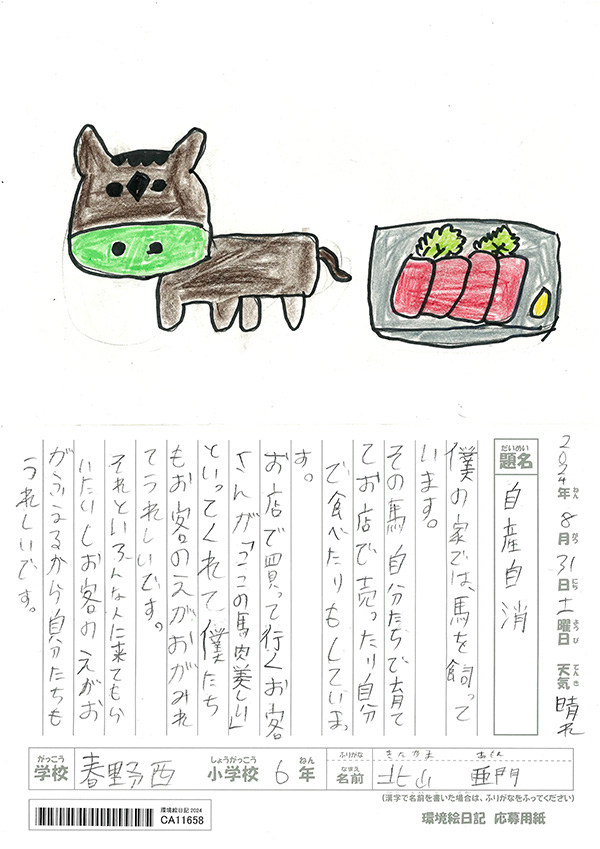 2024年8月31日土曜日 天気 晴れ
ねん がつ にち ようび てんき
だいめい
題名
自産自消
僕の家では、馬を飼って
います。
その馬 自分たちで育て
てお店で売ったり自分
で食べたりもしていま
す。
お店で買って行くお客
さんが「ここの馬肉美しい」
といってくれて僕たち
もお客のえがおがみれ
てうれしいです。
それといろんな人に来てもら
いたいしお客のえがお
がふえるから自分たちも
うれしいです。
がっこう
学校
春野西
しょうがっこう
小学校
6
ねん
年
ふりがな
なまえ
名前
きたやま あもん
北山 亜門
(漢字で名前を書いた場合は、ふりがなをふってください)
環境絵日記2024
CA11658
環境絵日記 応募用紙